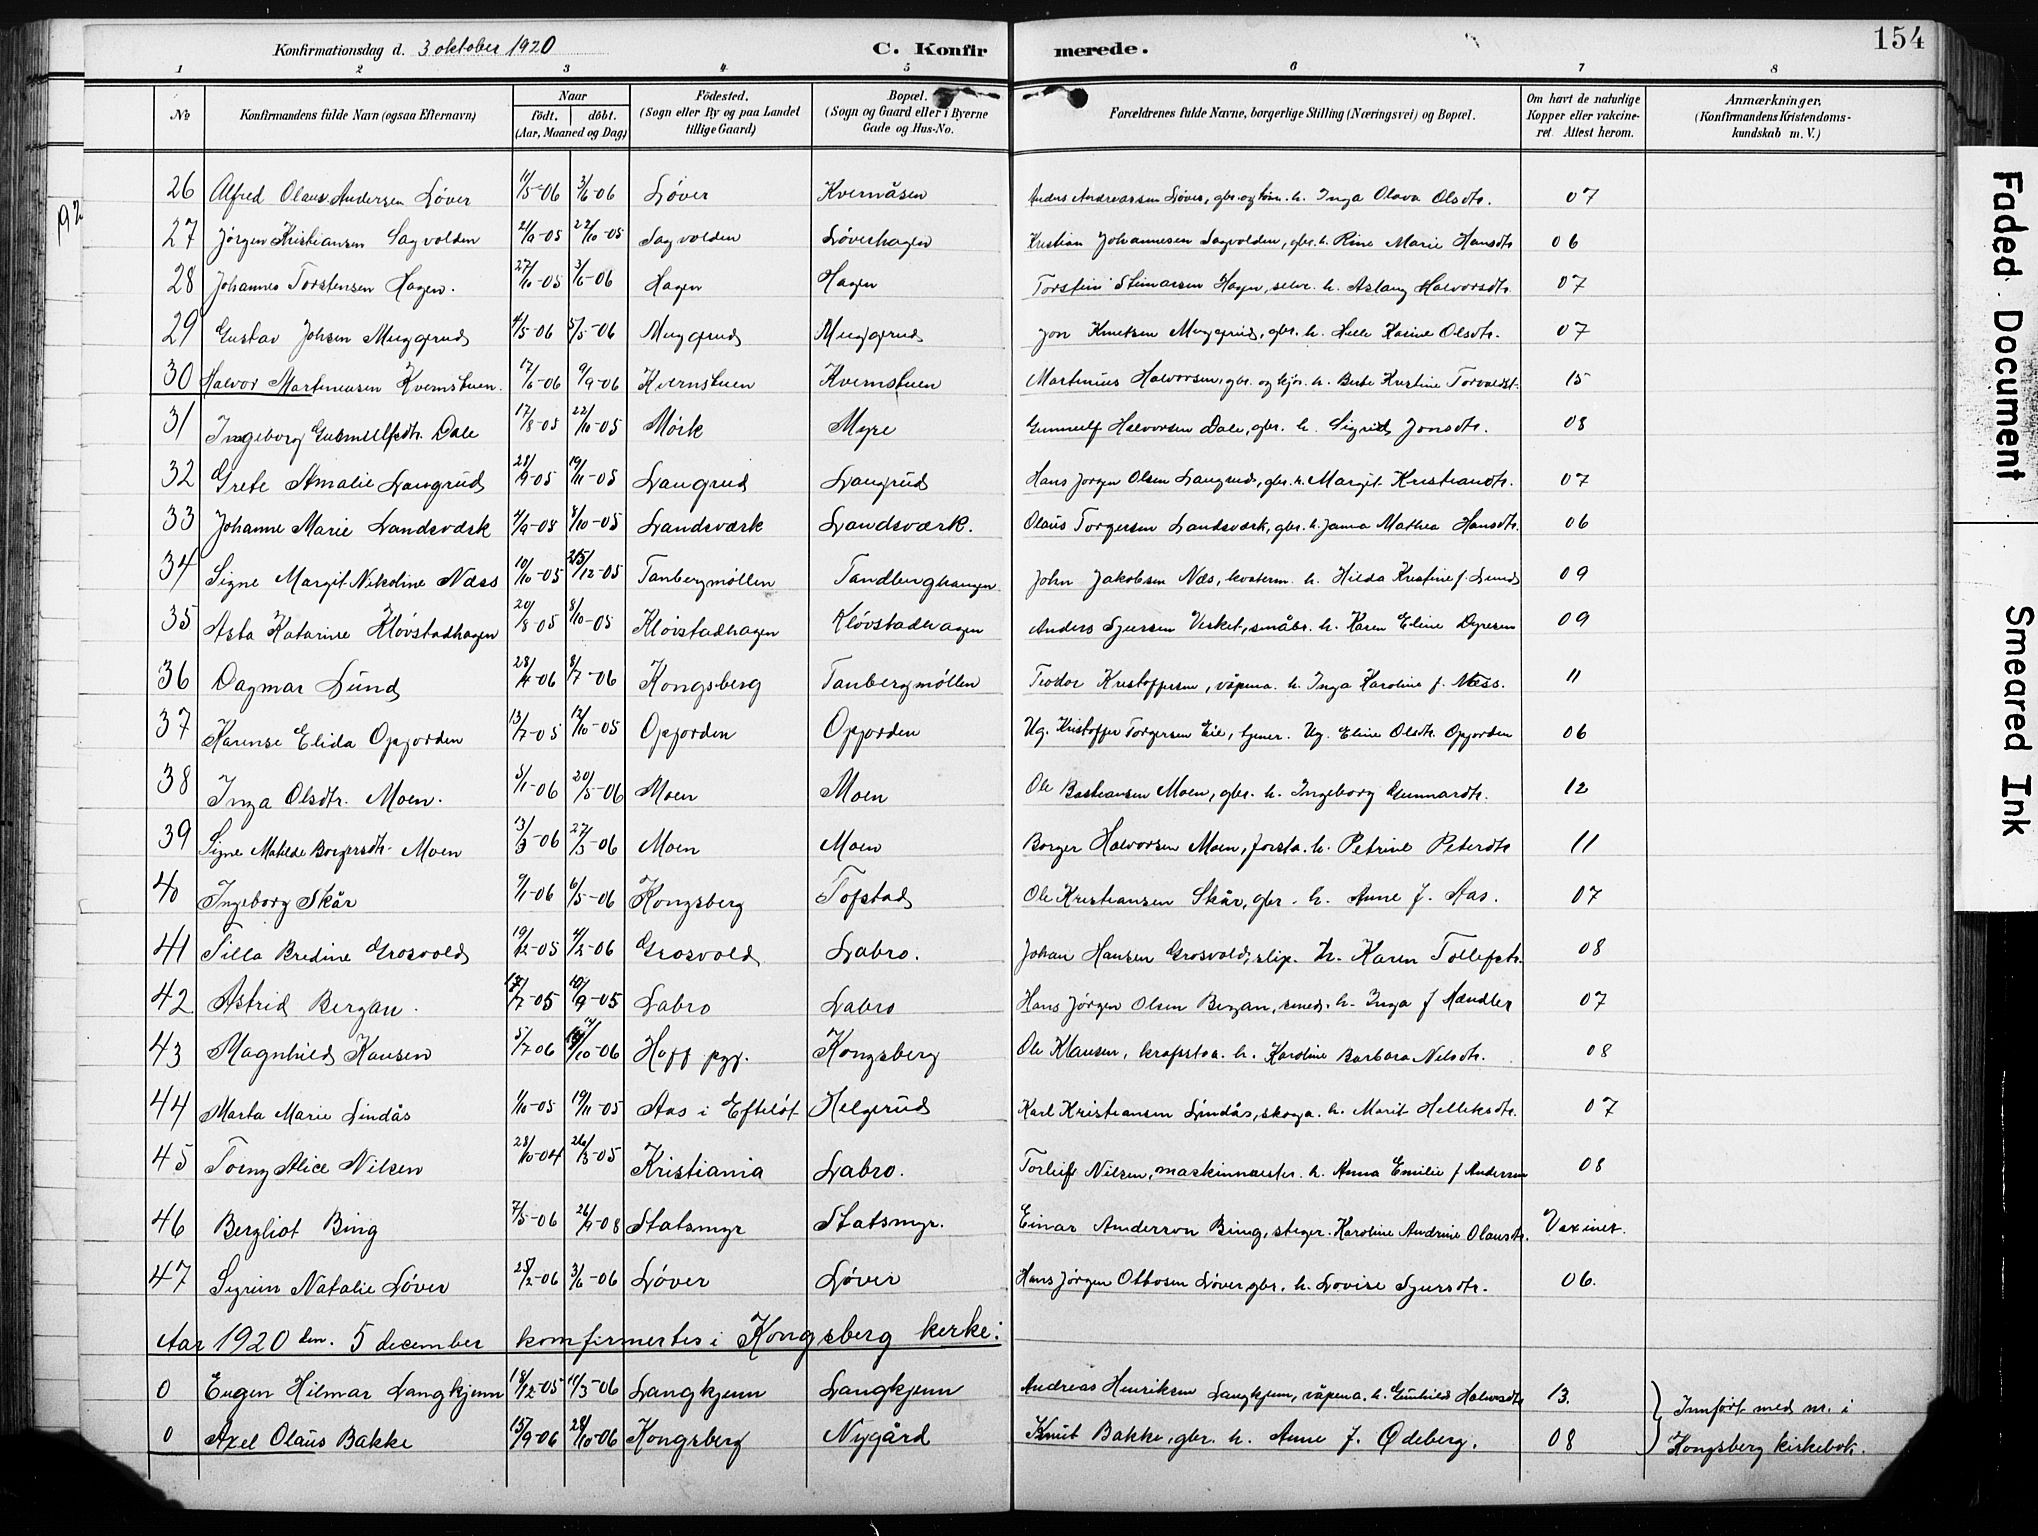 Konfirmationsdag d. 3 oktober 1920 C. Konfirmerede. 154
1 2 3 4 5 6 7 8
№ Konfirmandens fulde Navn (ogsaa Efternavn) Naar født. døbt. (Aar, Maaned og Dag) Fødested. (Sogn eller By og paa Landet tillige Gaard) Bopæl. (Sogn og Gaard eller i Byerne Gade og Hus-No. Forældrenes fulde Navne, borgerlige Stilling (Næringsvei) og Bopæl. Om havt de naturlige Kopper eller vakcineret. Attest herom. Anmærkninger. (Konfirmandens Kristendomskundskab m. V.)
26 Alfred Olaus Andersen Løver 11/5-06 3/6-06 Løver Kvernåsen Anders Andreassen Løver, gbr. og tøm. h. Inga Olava Olsdtr. 07
27 Jørgen Kristiansen Sagvolden 21/9-05 22/10-05 Sagvolden Løverhagen Kristian Johannesen Sagvolden, gbr. h. Rine Marie Hansdtr 06
28 Johannes Torstensen Hagen. 27/10-05 3/6-06 Hagen Hagen Torstein Steinarsen Hagen, selv. h. Aslaug Halvorsdtr. 07
29 Gustav Johsen Muggerud 4/5-06 5/5-06 Muggerud Muggerud Jon Knutsen Muggerud, gbr. h. Helle Karine Olsdtr. 07
30 Halvor Martiniusen Kvernstuen. 17/6-06 9/9-06 Kvernstuen Kvernstuen Martinius Halvorsen, gbr. og kjør. h. Berte Kristine Torvaldst. 15
31 Ingeborg Gunnulfsdtr. Dale 17/8-05 22/10-05 Mørk Myre Gunnulf Halvorsen Dale, gbr. h. Sigrid Jonsdtr. 08
32 Grete Amalie Langrud 28/9-05 19/11-05 Langrud Langrud Hans Jørgen Olsen Langrud, gbr. h. Margit Kristiandtr. 07
33 Johanne Marie Landsværk 4/9-05 8/10-05 Landsværk Landsværk. Olaus Torgersen Landsværk, gbr. h. Janna Mathea Hansdtr. 06
34 Signe Margit Nikoline Næss 10/10-05 25/12-05 Tanbergmøllen Tandberghaugen John Jakobsen Næs, kvaterm. h. Hilda Kristine f. Lund 09
35 Asta Katarine Kløvstadhagen 20/8-05 8/10-05 Kløvstadhagen Kløvstadhagen Anders Sjursen Verket, småbr. h. Karen Eline Dyresen 09
36 Dagmar Lund 28/4-06 8/7-06 Kongsberg Tanbergmøllen Teodor Kristoffersen, våpena. h. Inga Karoline f. Næss. 11
37 Karense Elida Opjorden 13/7-05 12/10-05 Opjorden Opjorden Ug. Kristoffer Torgersen Eie, tjener. Ug. Eline Olsdtr. Opjorden 06
38 Inga Olsdtr. Moen. 5/1-06 20/5-06 Moen Moen Ole Bastiansen Moen, gbr. h. Ingeborg Gunnardtr. 12
39 Signe Matilde Borgersdtr. Moen 13/3-06 27/3-06 Moen Moen Borger Halvorsen Moen, forsta. h. Petrine Peterdtr 11
40 Ingeborg Skår 9/1-06 6/5-06 Kongsberg Tofstad Ole Kristiansen Skår, gbr. h. Anne f. Aas. 07
41 Tilla Bredine Grosvold 19/12-05 4/2-06 Grosvold Labro. Johan Hansen Grosvold, slip. h. Karen Tollefsdtr. 08
42 Astrid Bergan. 17/7-05 10/9-05 Labro Labro Hans Jørgen Olsen Bergan, smed. h. Inga f Mændler 07
43 Magnhild Kausen 5/7 06 14/10-06 Hoff pgj. Kongsberg Ole Klausen, krafsta. h. Karoline Barbara Nelsdtr. 08
44 Marta Marie Lindås 1/10-05 19/11-05 Aas i Efteløt Helgerud Karl Kristiansen Lindås, skoga. h. Marit Helleksdtr. 07
45 Toiny Alice Nilsen 28/10-04 26/3-05 Kristiania Labro. Torleif Nilsen, maskinmester. h. Anna Emilie f Andersen 08
46 Bergliot Bing 7/5-06 26/9-08 Statsmyr Statsmyr. Einar Anderson Bing, steger. Karoline Andrine Olausdtr. Vaxinet.
47 Sigrun Natalie Løver 25/2-06 3/6-06 Løver Løver Hans Jørgen Ottosen Løver gbr. h. Lovise Sjursdtr. 06.
Aar 1920 den. 5 december konfirmertes i Kongsberg kerke:
0 Eugen Hilmar Langkjenn 18/12-05 11/3-06 Langkjenn Langkjenn Andreas Henriksen Langkjenn, våpena. h. Gunhild Halvorsdtr 13. Innført med nr. i
0 Axel Olaus Bakke 15/9-06 28/10-06 Kongsberg Nygård Knut Bakke, gbr. h. Anne f. Ødeberg. 08 Kongsberg kirkebok.
192
Faded Document
Smeared Ink